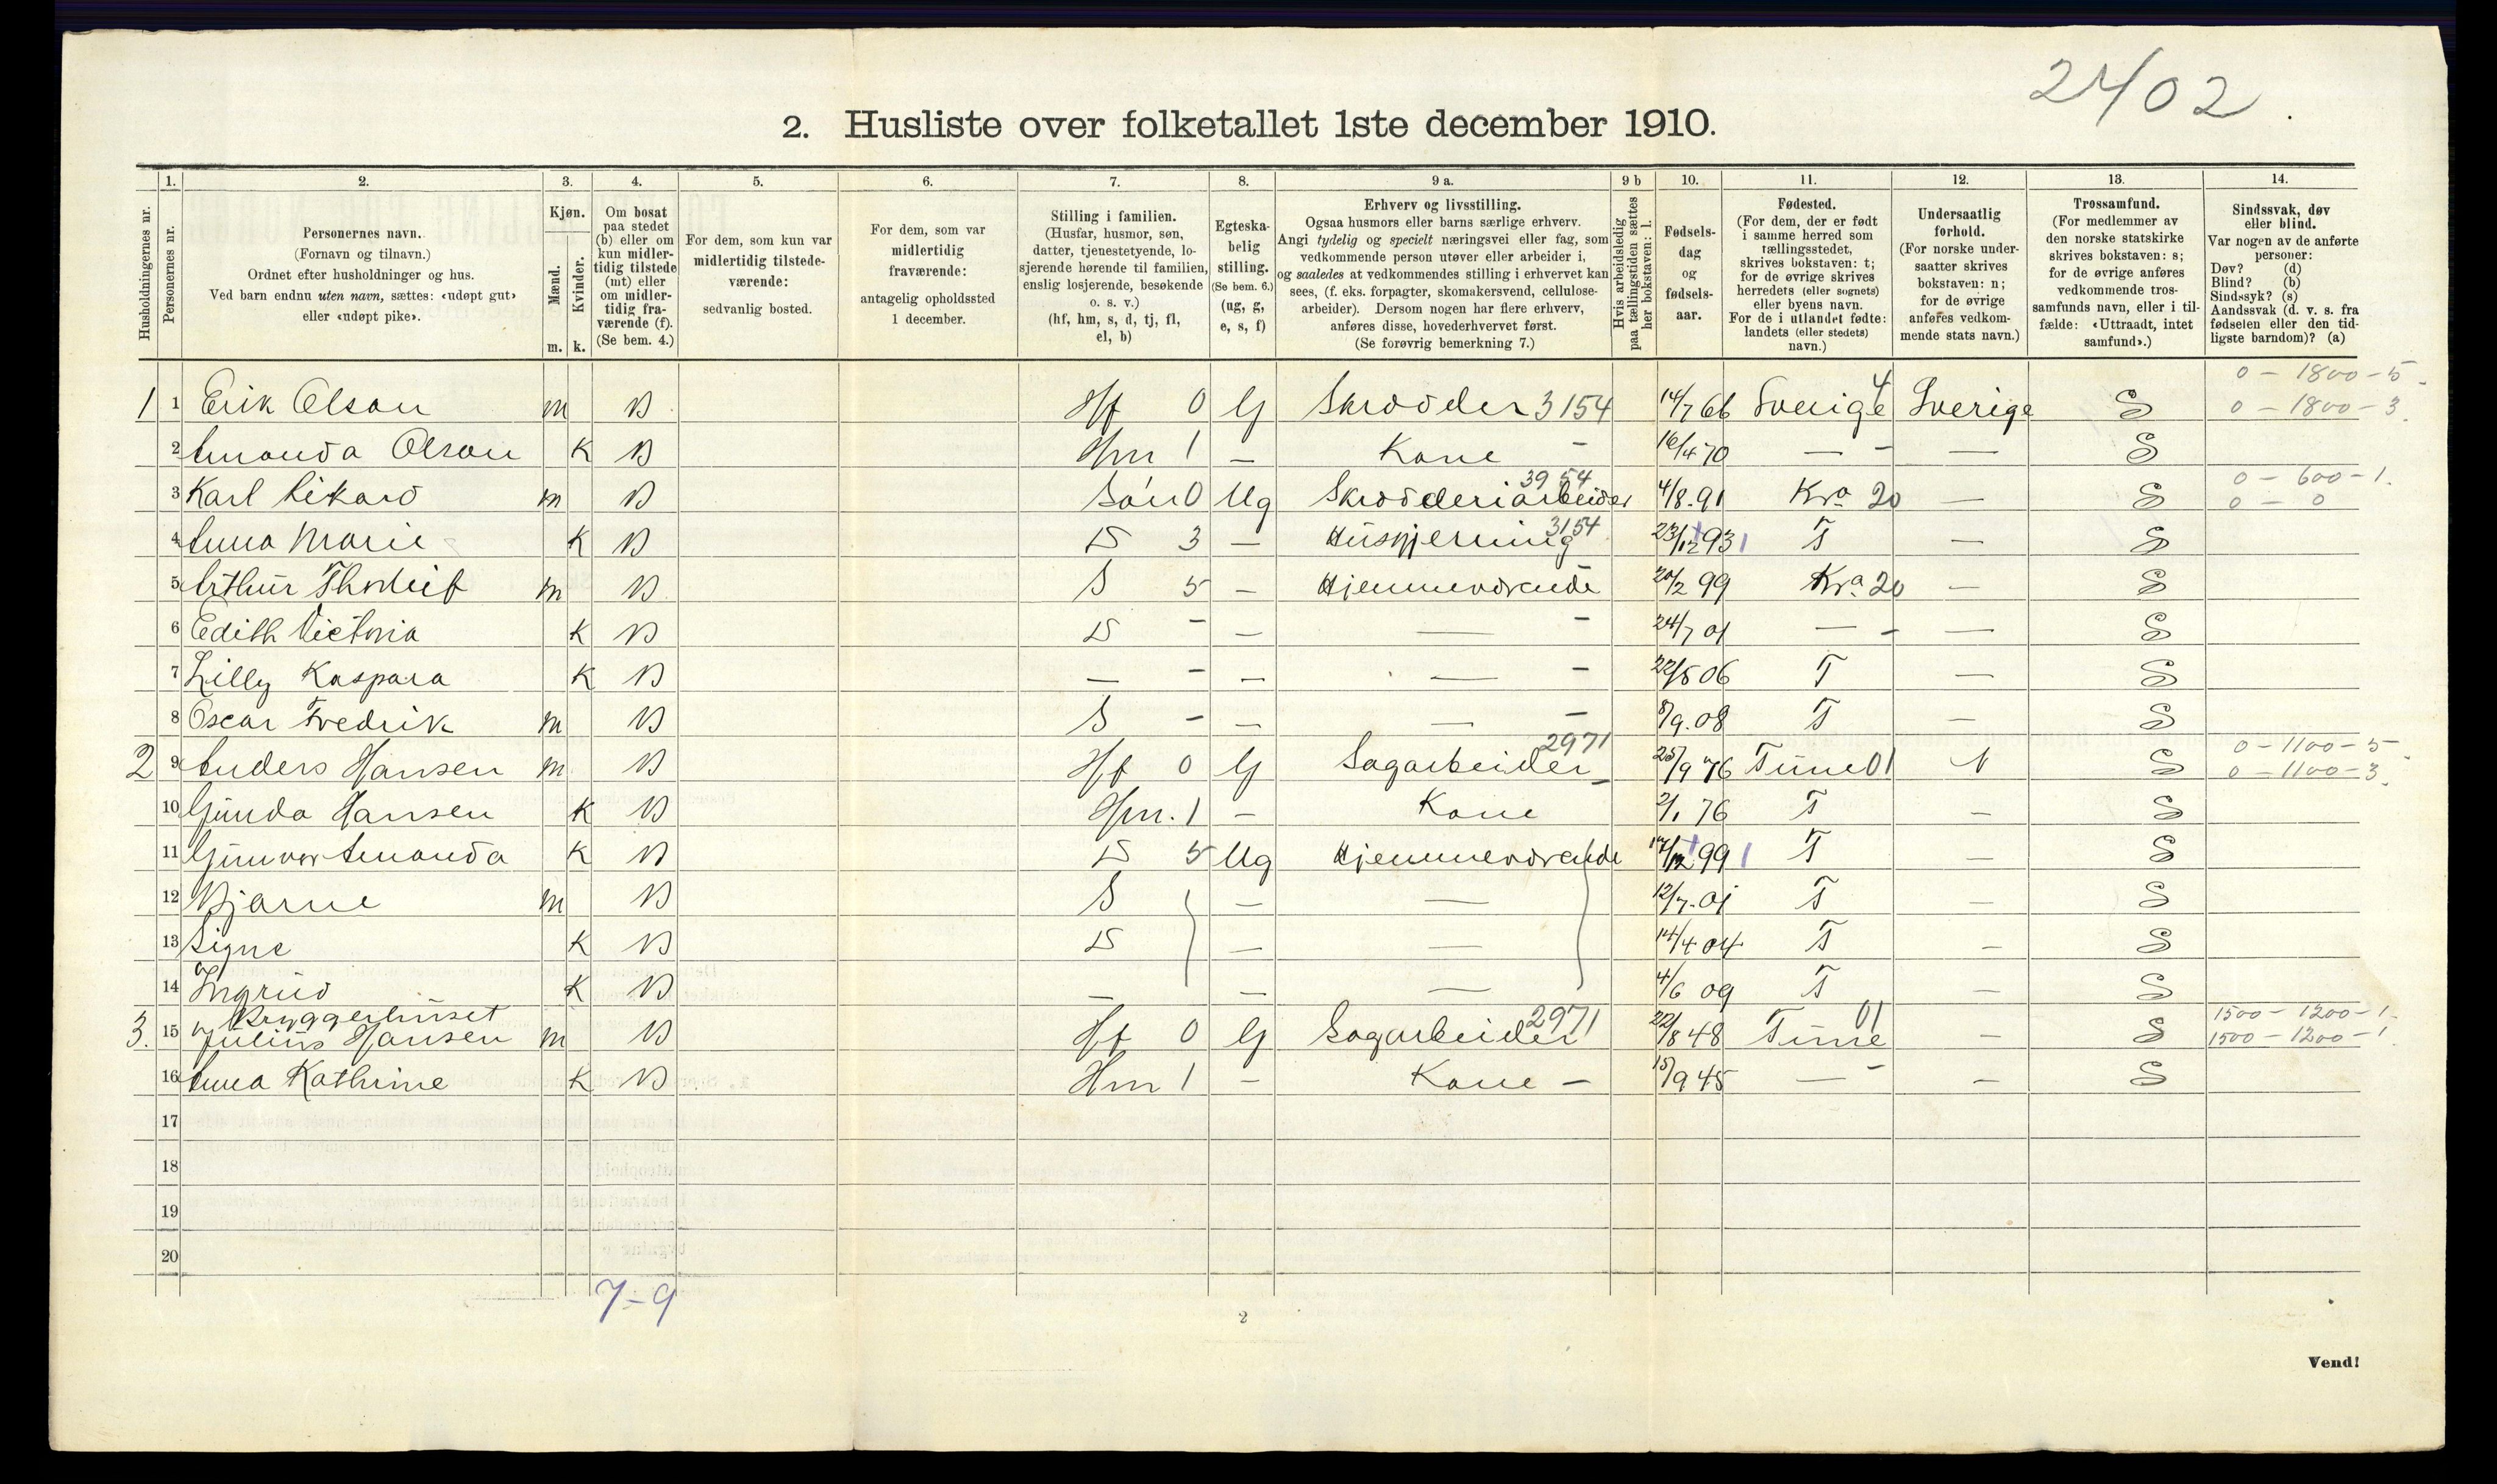 2402.
2. Husliste over folketallet 1ste december 1910.
Husholdningernes nr.
1.
Personernes nr.
2.
Personernes navn.
(Fornavn og tilnavn.)
Ordnet efter husholdninger og hus.
Ved barn endnu uten navn, sættes: «udøpt gut»
eller «udøpt pike».
3.
Kjøn.
Mænd.
Kvinder.
m. k.
4.
Om bosat
paa stedet
(b) eller om
kun midler-
tidig tilstede
(mt) eller
om midler-
tidig fra-
værende (f).
(Se bem. 4.)
5.
For dem, som kun var
midlertidig tilstede-
værende:
sedvanlig bosted.
6.
For dem, som var
midlertidig
fraværende:
antagelig opholdssted
1 december.
7.
Stilling i familien.
(Husfar, husmor, søn,
datter, tjenestetyende, lo-
sjerende hørende til familien,
enslig losjerende, besøkende
o. s. v.)
(hf, hm, s, d, tj, fl,
el, b)
8.
Egteska-
belig
stilling.
(Se bem. 6.)
(ug, g,
e, s, f)
9 a.
Erhverv og livsstilling.
Ogsaa husmors eller barns særlige erhverv.
Angi tydelig og specielt næringsvei eller fag, som
vedkommende person utøver eller arbeider i,
og saaledes at vedkommendes stilling i erhvervet kan
sees, (f. eks. forpagter, skomakersvend, cellulose-
arbeider). Dersom nogen har flere erhverv,
anføres disse, hovederhvervet først.
(Se forøvrig bemerkning 7.)
9 b
Hvis arbeidsledig
paa tællingstiden sættes
her bokstaven: l.
10.
Fødsels-
dag
og
fødsels-
aar.
11.
Fødested.
(For dem, der er født
i samme herred som
tællingsstedet,
skrives bokstaven: t;
for de øvrige skrives
herredets (eller sognets)
eller byens navn.
For de i utlandet fødte:
landets (eller stedets)
navn.)
12.
Undersaatlig
forhold.
(For norske under-
saatter skrives
bokstaven: n;
for de øvrige
anføres vedkom-
mende stats navn.)
13.
Trossamfund.
(For medlemmer av
den norske statskirke
skrives bokstaven: s;
for de øvrige anføres
vedkommende tros-
samfunds navn, eller i til-
fælde: «Uttraadt, intet
samfund».)
14.
Sindssvak, døv
eller blind.
Var nogen av de anførte
personer:
Døv? (d)
Blind? (b)
Sindssyk? (s)
Aandssvak (d. v. s. fra
fødselen eller den tid-
ligste barndom)? (a)
0 - 1800 - 5.
1 1 Erik Olson m B Hf 0 G Skrædder 3154 14/7 66 Sverige 4 Sverige S 0 - 1800 - 3.
2 Amanda Olson K B Hm 1 — Kone - 16/4 70 — - — S
3954 0 - 600 - 1.
3 Karl Rikard m B Søn 0 Ug Skrædderiarbeider 4/8.91 Kra 20 — S 0 - 0
4 Anna Marie K B D 3 — Husgjerning 3154 23/12 93 1 T — S
5 Arthur Thorleif m B S 5 — Hjemmeværende 20/2 99 Kra. 20 — S
6 Edith Victoria K B D - — — - 24/7 01 — - — S
7 Lilly Kaspara K B — - — — - 22/5 06 T — S
8 Oscar Fredrik m B S - — — - 8/9.08 T — S
2971 0 - 1100 - 5
2 9 Anders Hansen m B Hf 0 G Sagarbeider 25/9 76 Tune 01 N S 0 - 1100 - 3.
10 Gunda Hansen K B Hm. 1 — Kone 2/1 76 T — S
11 Gunvor Amanda K B D 5 Ug Hjemmeværende 17/12 99 1 T — S
12 Bjarne m B S — — 12/7.01 T — S
13 Signe K B D — — 14/4 04 T — S
14 Ingrid K B — — — 4/6 09 T — S
Bryggerhuset 2971 01 1500 - 1200 - 1.
3. 15 Julius Hansen m B Hf 0 G Sagarbeider 22/8 48 Tune — S 1500 - 1200 - 1
16 Anna Kathrine K B Hm 1 — Kone - 15/9 45 — - — S
17
18
19
20
7 - 9
2
Vend!